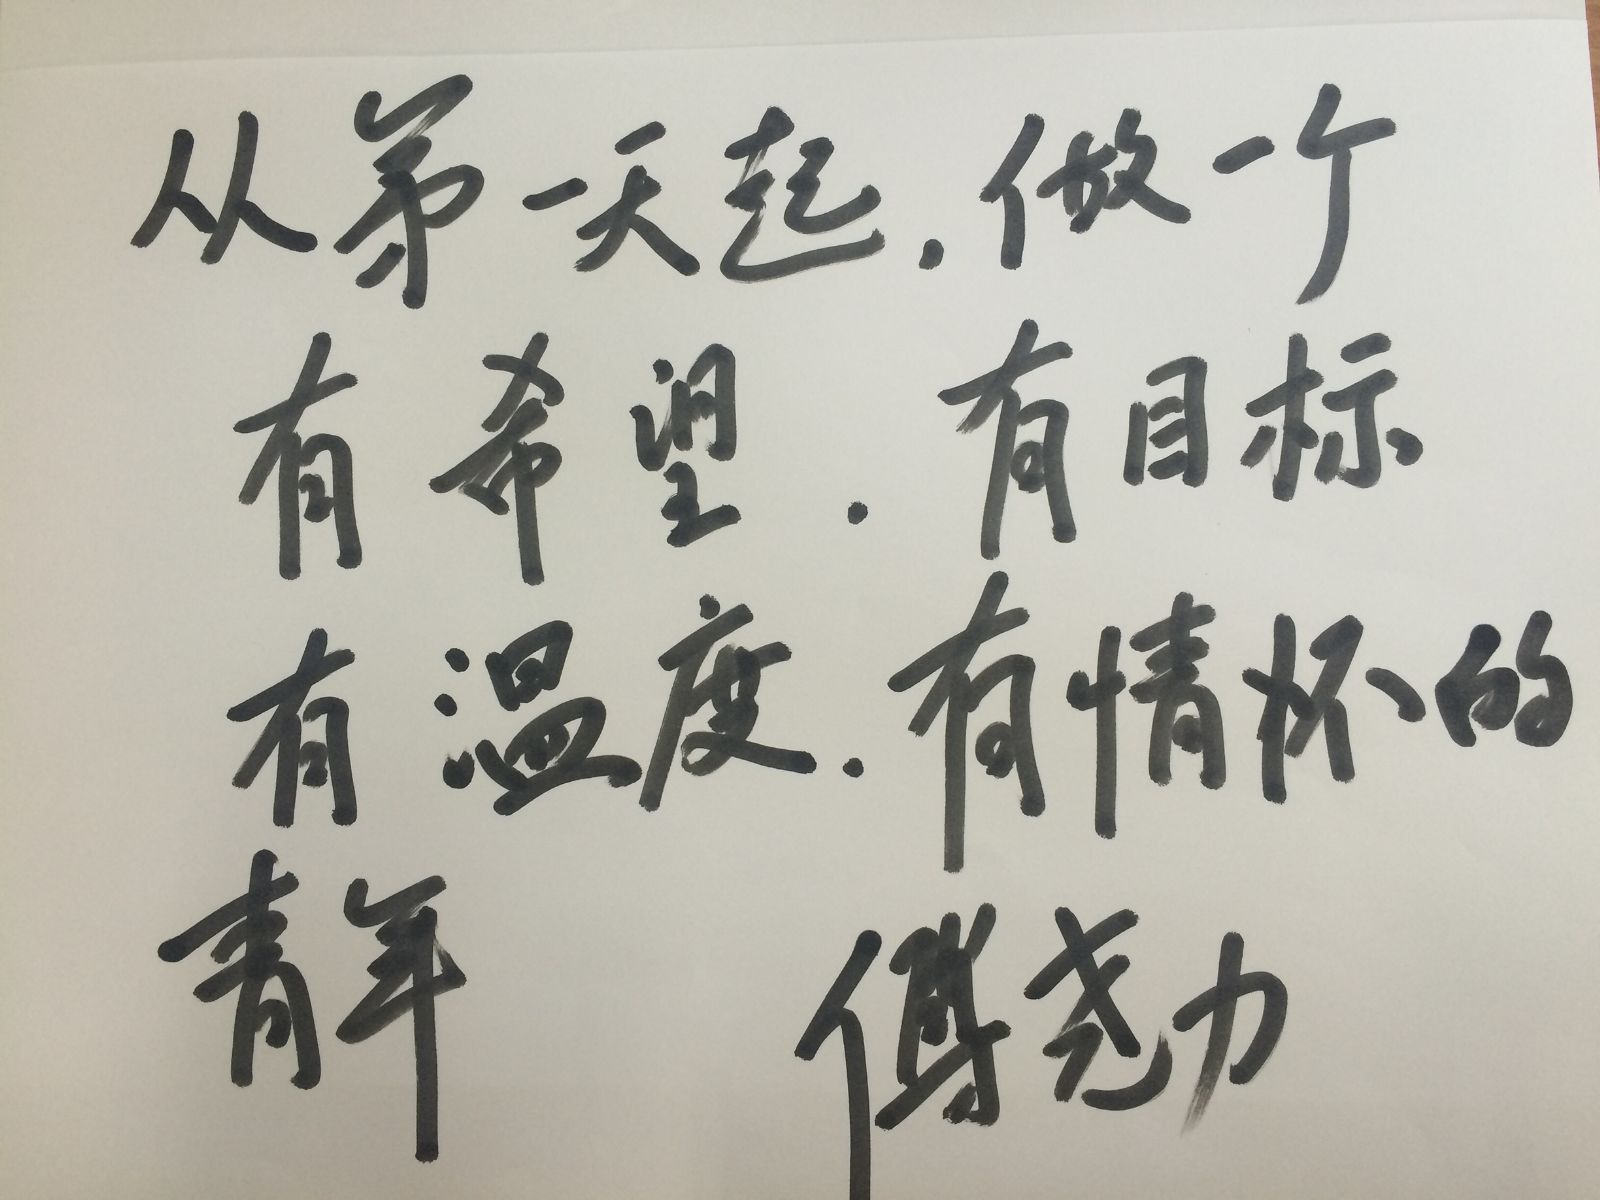 从第一天起.做一个
有希望.有目标
有温度.有情怀的
青年 傅尧力